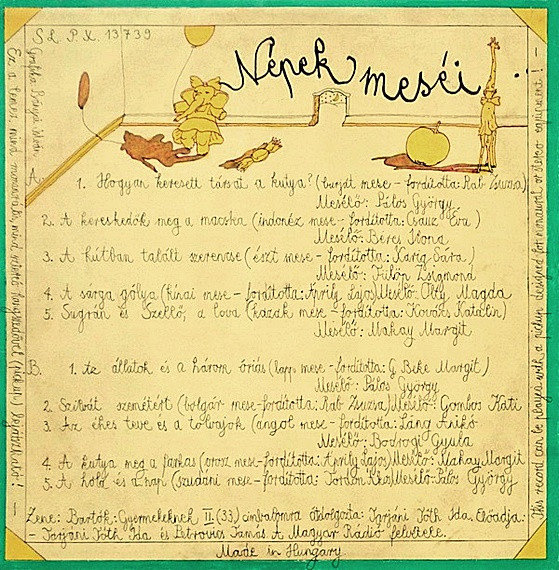 SLPX 13739
Grafika: Bányai István
Népek meséi
Ez a lemez mind monaurális, mind sztereo hangszedővel (pick up) lejátszható! —
A.
1. Hogyan keresett társat a kutya? (burját mese - fordította: Rab Zsuzsa)
Mesélő: Pálos György.
2. A kereskedők meg a macska (indonéz mese - fordította: Ignácz Éva)
Mesélő: Béres Ilona
3. A kútban talált szerencse (észt mese - fordította: Karig Sára)
Mesélő: Fülöp Zsigmond
4. A sárga gólya (kínai mese - fordította: Áprily Lajos) Mesélő: Olty Magda
5. Sugrán és Szellő, a lova (kazak mese - fordította: Kovács Katalin)
Mesélő: Makay Margit
B.
1. Az állatok és a három óriás (lapp mese - fordította: G. Beke Margit)
Mesélő: Pálos György
2. Szilvát szemétért (bolgár mese - fordította: Rab Zsuzsa) Mesélő: Gombos Kati
3. Az éhes teve és a tolvajok (angol mese - fordította: Láng Anikó
Mesélő: Bodrogi Gyula
4. A kutya meg a farkas (orosz mese - fordította: Áprily Lajos) Mesélő: Makay Margit
5. A hold és a nap (szudáni mese - fordította: Tordon Ákos) Mesélő: Pálos György
Zene: Bartók: Gyermekeknek II. (33.) cimbalomra átdolgozta: Tarjáni Tóth Ida. Előadja:
- Tarjáni Tóth Ida és Petrovics Tamás A Magyar Rádió felvétele.
Made in Hungary
This record can be played with a pickup designed for monaural or stereo equipment! —